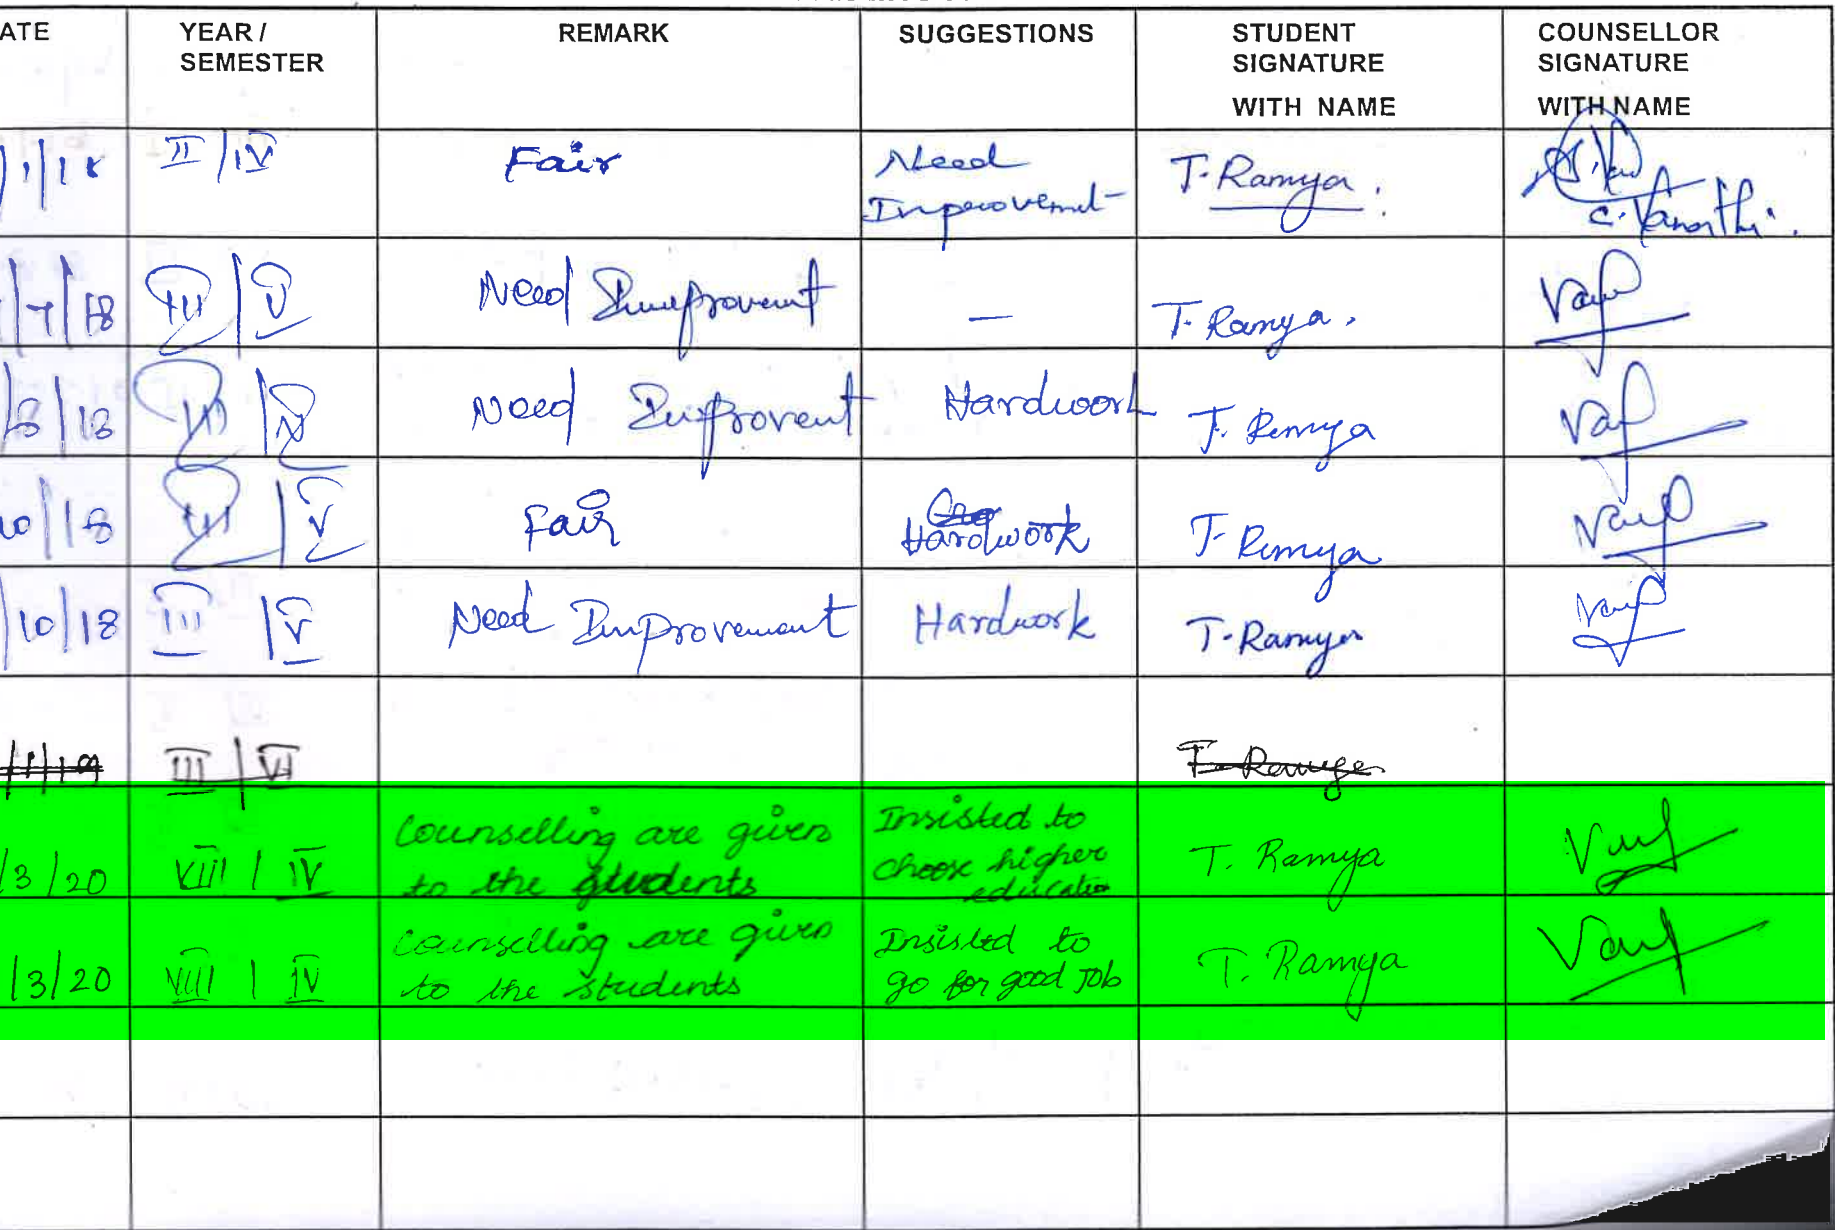 ATE YEAR / SEMESTER REMARK SUGGESTIONS STUDENT SIGNATURE WITH NAME COUNSELLOR SIGNATURE WITH NAME
/1/18 II / IV Fair Need Improvemet T. Ramya. C. Vanathi.
/7/18 III / V Need Improvent — T. Ramya.
/8/18 III / V Need Improvent Hardwork T. Ramya
10/18 III / V Fair Hardwork T. Ramya
/10/18 III / V Need Improvement Hardwork T. Ramya
/1/19 III / VI T. Ramya
/3/20 VIII / IV Counselling are given to the students Insisted to choose higher education T. Ramya
/3/20 VIII / IV Counselling are given to the students Insisted to go for good Job T. Ramya